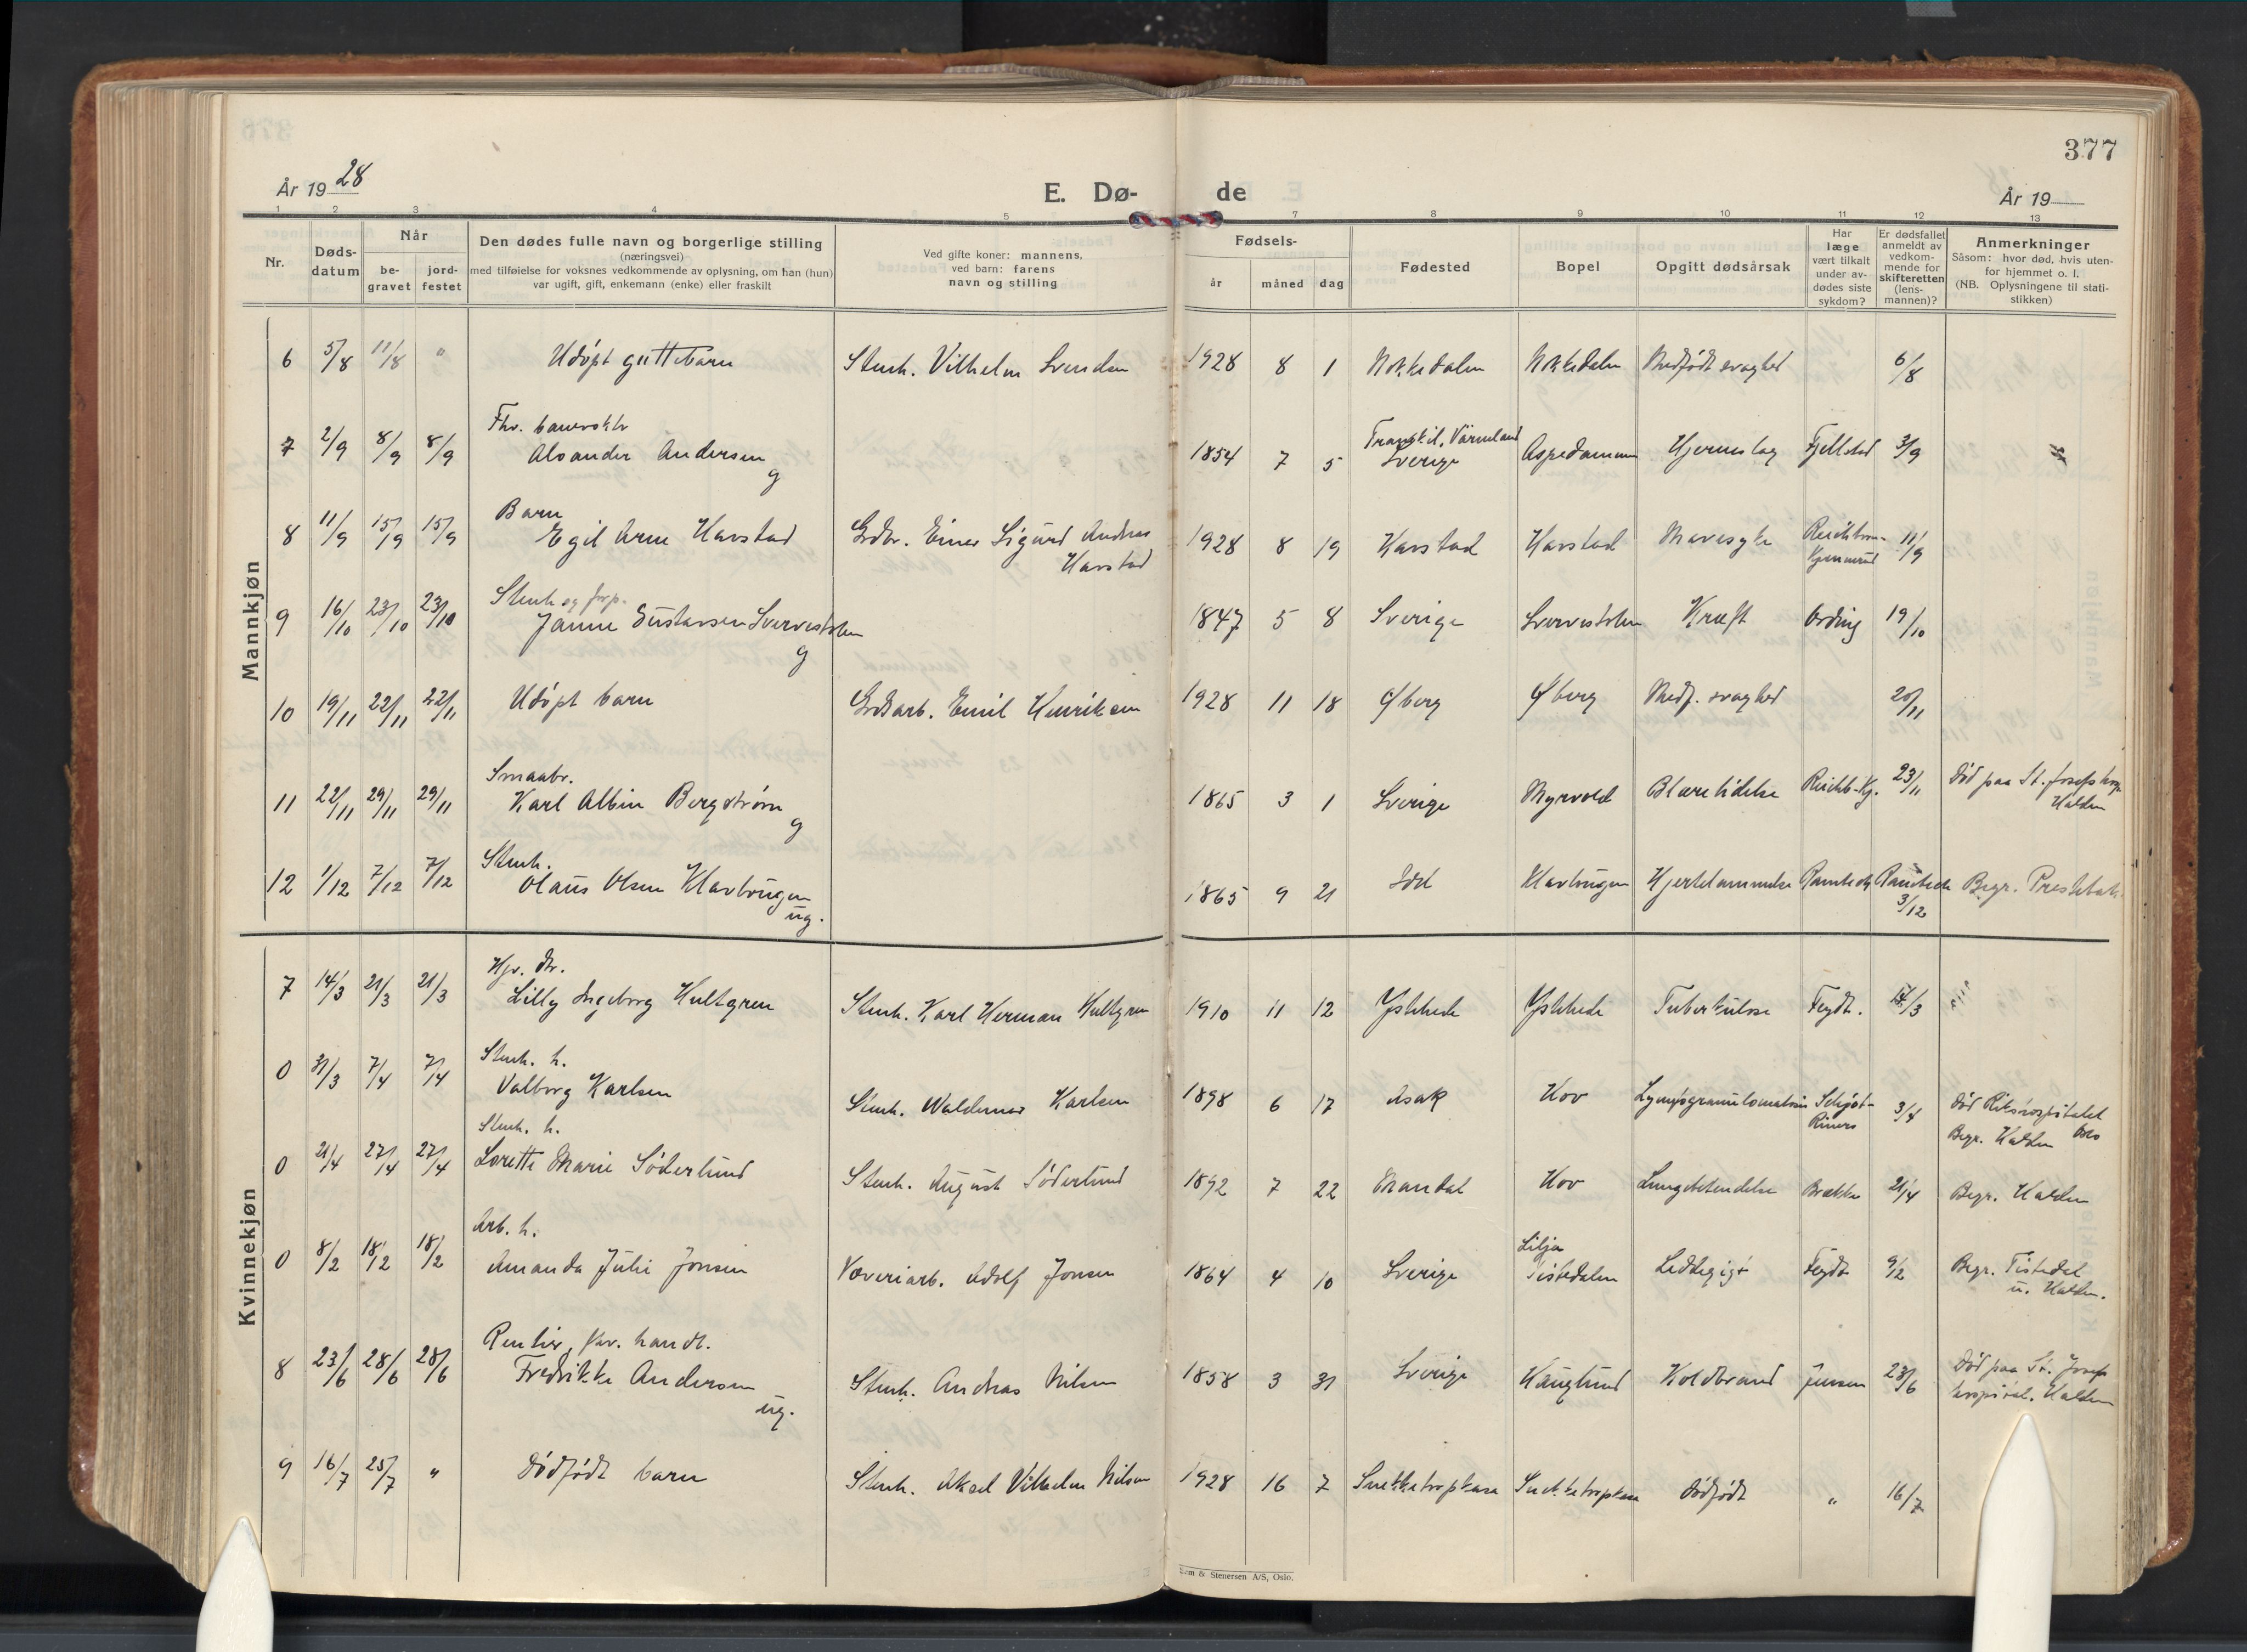 377
År 1928
E. Dø-
de
År 19
1 2 3 4 5 7 8 9 10 11 12 13
Nr.
Døds-
datum
Når
be-
gravet
jord-
festet
Den dødes fulle navn og borgerlige stilling
(næringsvei)
med tilføielse for voksnes vedkommende av oplysning, om han (hun)
var ugift, gift, enkemann (enke) eller fraskilt
Ved gifte koner: mannens,
ved barn: farens
navn og stilling
Fødsels-
år
måned
dag
Fødested
Bopel
Opgitt dødsårsak
Har
læge
vært tilkalt
under av-
dødes siste
sykdom?
Er dødsfallet
anmeldt av
vedkom-
mende for
skifteretten
(lens-
mannen)?
Anmerkninger
Såsom: hvor død, hvis uten-
for hjemmet o. l.
(NB. Oplysningene til stati-
stikken)
Mannkjøn
6 5/8 11/8 " Udøpt guttebarn Stenh. Vilhelm Svendsen 1928 8 1 Nokkedalen Nokkedalen Medfødt svaghed 6/8
Fhv. banevokter
7 2/9 8/9 8/9 Alexander Andersen 1854 7 5 Sverige Aspedammen Hjerneslag Fjellstad 3/9
Värmland
g
Barn
8 11/9 15/9 15/9 Egil Arne Harstad Grdbr. Einar Sigurd Andreas 1928 8 19 Harstad Harstad Mavesyke 11/9
Harstad
Stenh og forp.
9 16/10 23/10 23/10 Janne Gustavsen 1847 5 8 Sverige Kræft Ording 19/10
g
10 19/11 22/11 22/11 Udøpt barn Grdsarb. Emil Henriksen 1928 11 18 Øberg Øberg Medf. svaghed 20/11
Smaabr.
11 22/11 29/11 29/11 Karl Albin Bergstrøm 1865 3 1 Sverige Myrvold Blærelidelse 23/11 Død paa St. Josefs hosp.
Halden
g
Stenh.
12 1/12 7/12 7/12 Olaus Olsen Klavbrugen 1865 9 21 Idd Klavbrugen Hjertelammelse Begr. Prestebak
3/12
ug.
Kvinnekjøn
7 14/3 21/3 21/3 Lilly Ingeborg Hultgren Stenh. Karl Herman Hultgren 1910 11 12 Ystehede Ystehede Tuberkulose Feydt. /3
Stenh. h.
0 31/3 7/4 7/4 Valborg Karlsen Stenh. Waldemar Karlsen 1898 6 17 Asak Hov Lymfogranulomatosis 3/4 Død Rikshospitalet
Oslo
Begr. Halden
Stenh. h.
0 21/4 27/4 27/4 Lorette Marie Søderlund Stenh. August Søderlund 1892 7 22 Mandal Hov Lungebetendelse Brække 21/4 Begr. Halden
Arb. h.
0 8/2 18/2 18/2 Amanda Julie Jonsen Væveriarb. Adolf Jonsen 1864 4 10 Sverige Lilja
Tistedalen Leddegigt Feydt 9/2 Begr. Tistedal
u. Halden.
Rentier, fhv. handl.
8 23/6 28/6 28/6 Fredrikke Andersen Stenh. Andreas Nilsen 1858 3 31 Sverige Hauglund Koldbrand Jensen 23/6 Død paa St. Josefs
hospital. Halden
ug.
9 16/7 25/7 " Dødfødt barn Stenh. Aksel Vilhelm Nilsen 1928 16 7 Dødfødt " 16/7
& Stenersen A/S, Oslo.